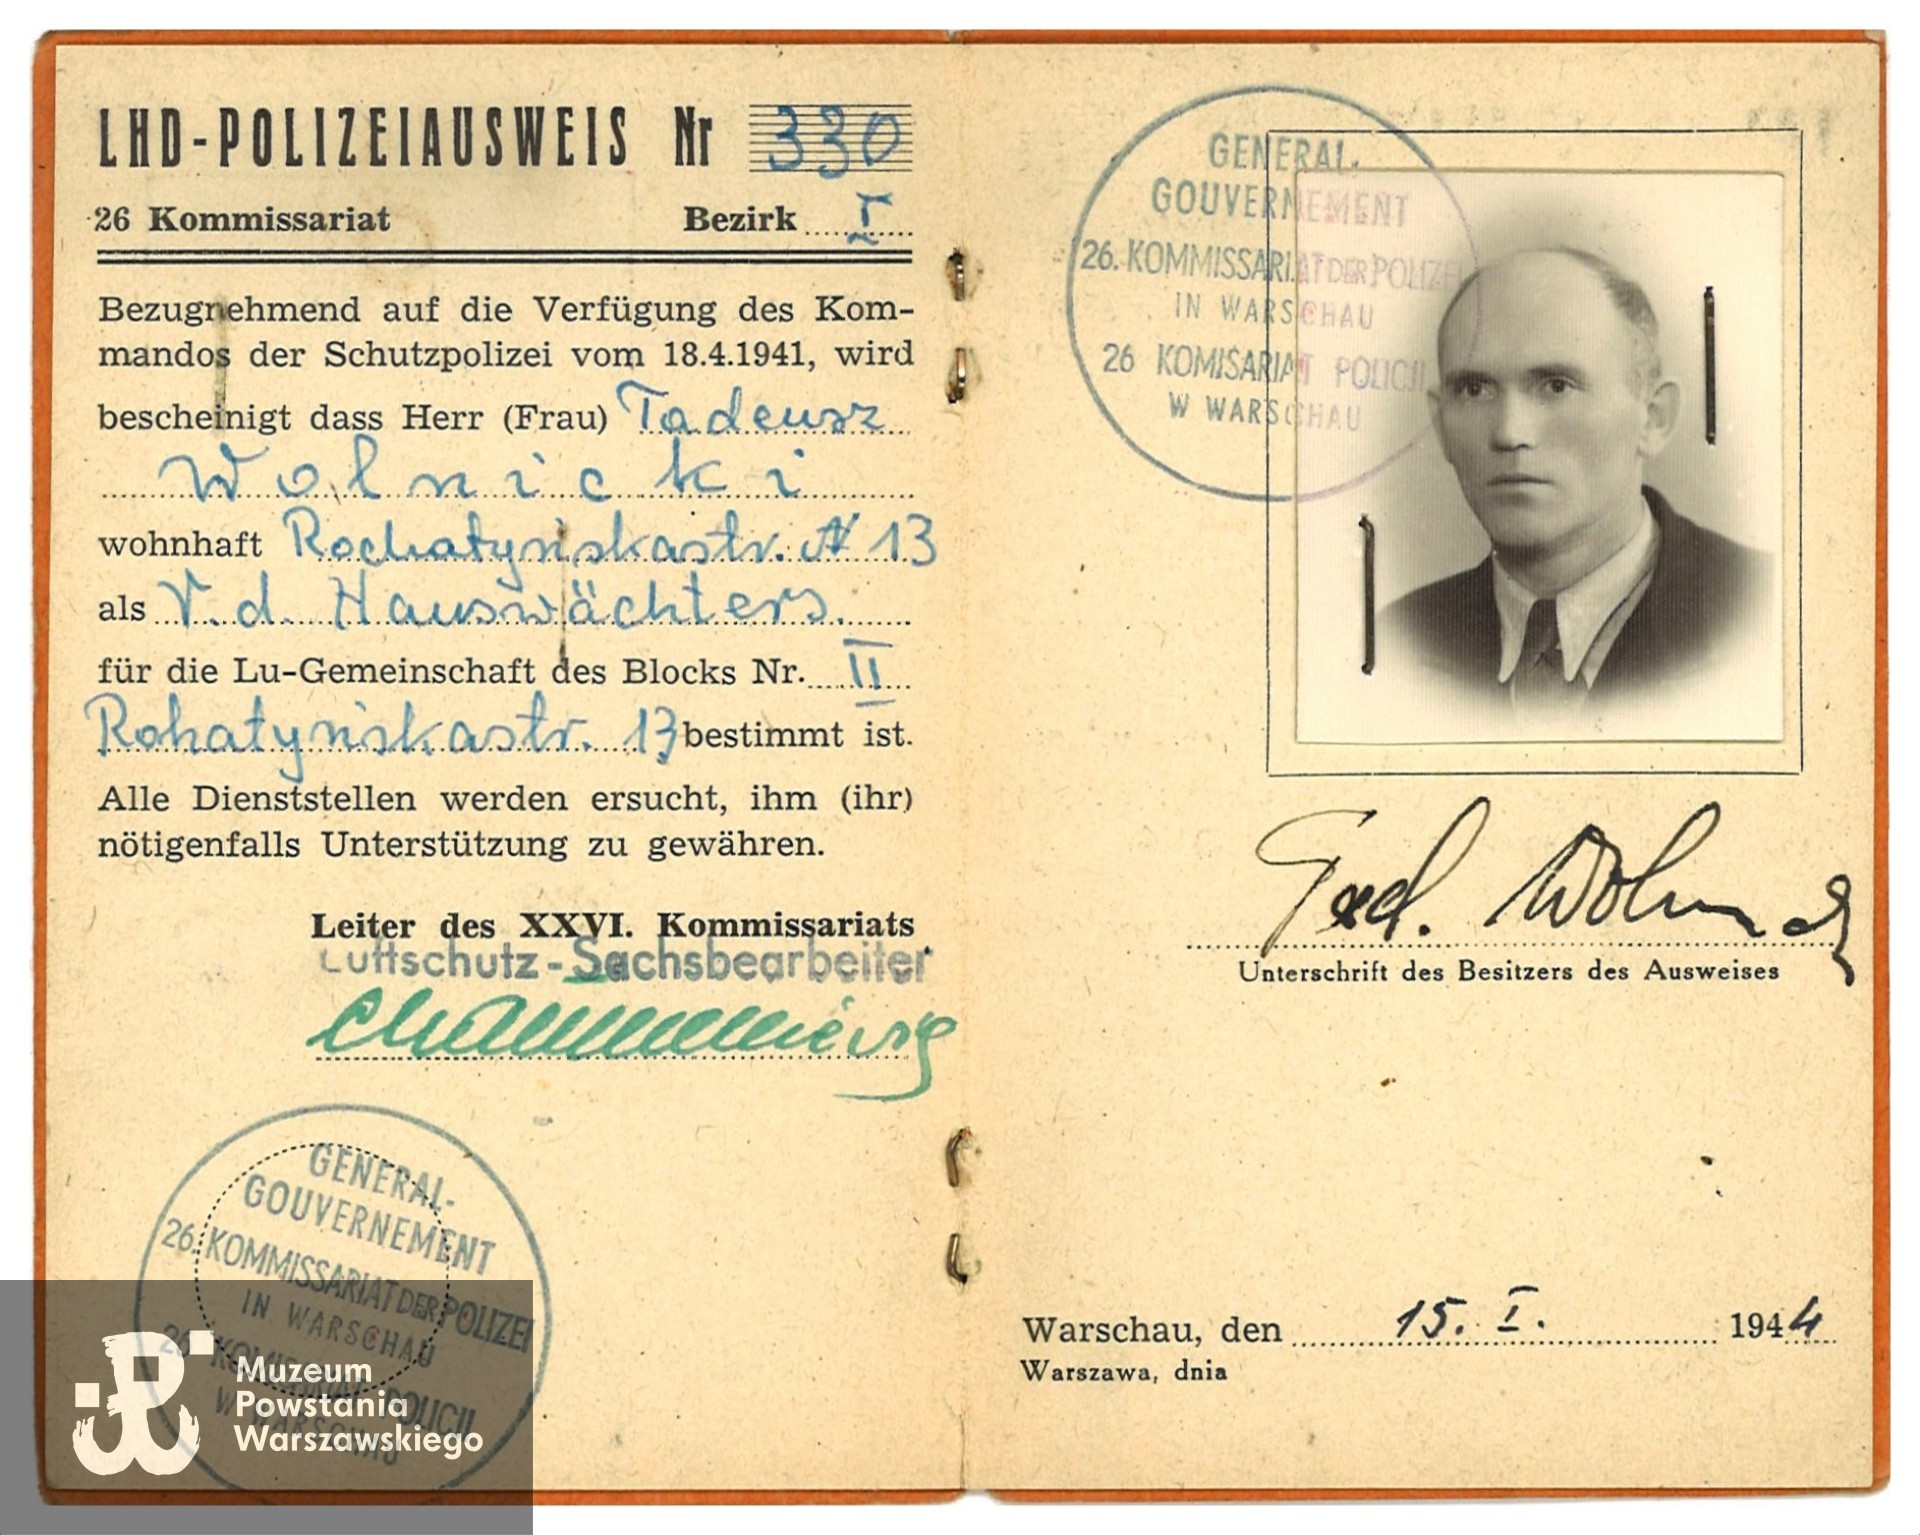 LHD-POLIZEIAUSWEIS Nr 330
26 Kommissariat Bezirk I
Bezugnehmend auf die Verfügung des Kom-
mandos der Schutzpolizei vom 18.4.1941, wird
bescheinigt dass Herr (Frau) Tadeusz
Wolnicki
wohnhaft Rochatyńskastr. N 13
als V. d. Hauswächters.
für die Lu-Gemeinschaft des Blocks Nr. II
Rohatyńskastr. 13 bestimmt ist.
Alle Dienststellen werden ersucht, ihm (ihr)
nötigenfalls Unterstützung zu gewähren.
Leiter des XXVI. Kommissariats
Luftschutz-Sachsbearbeiter
GENERAL-
GOUVERNEMENT
26. KOMMISSARIAT DER POLIZEI
IN WARSCHAU
26 KOMISARIAT POLICJI
W WARSCHAU
Muzeum
Powstania
Warszawskiego
GENERAL-
GOUVERNEMENT
26. KOMMISSARIAT DER POLIZEI
IN WARSCHAU
26 KOMISARIAT POLICJI
W WARSCHAU
Tad. Wolnicki
Unterschrift des Besitzers des Ausweises
Warschau, den 15. I. 1944
Warszawa, dnia